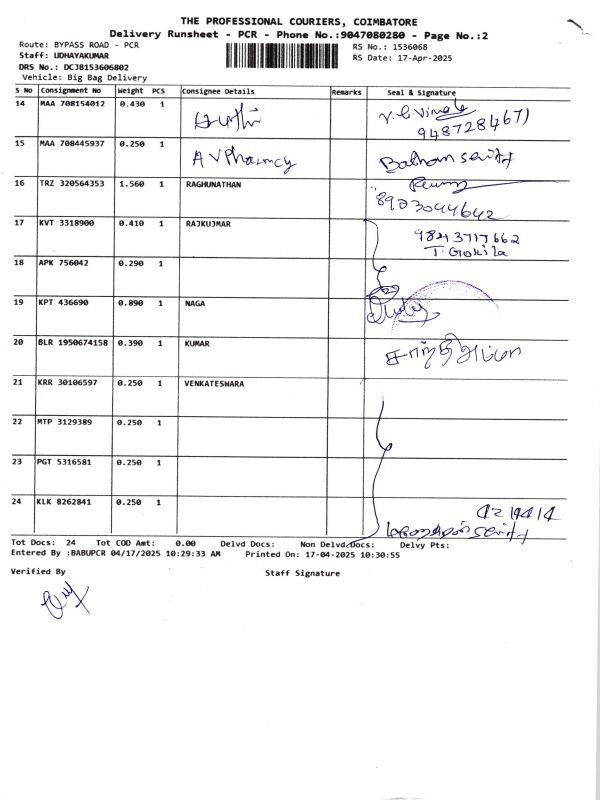 THE PROFESSIONAL COURIERS, COIMBATORE
Delivery Runsheet - PCR - Phone No.:9047080280 - Page No.:2
Route: BYPASS ROAD - PCR
Staff: UDHAYAKUMAR
DRS No.: DCJB153606802
Vehicle: Big Bag Delivery
RS No.: 1536068
RS Date: 17-Apr-2025
S No Consignment No Weight PCS Consignee Details Remarks Seal & Signature
14 MAA 708154012 0.430 1 V. G Vimala
9487284671
15 MAA 708445937 0.250 1 A V Pharmcy
16 TRZ 320564353 1.560 1 RAGHUNATHAN
8903044642
17 KVT 3318900 0.410 1 RAJKUJMAR 9843717662
T. Gokila
18 APK 756042 0.290 1
19 KPT 436690 0.890 1 NAGA
20 BLR 1950674158 0.390 1 KUMAR
21 KRR 30106597 0.250 1 VENKATESWARA
22 MTP 3129389 0.250 1
23 PGT 5316581 0.250 1
24 KLK 8262841 0.250 1
Tot Docs: 24 Tot COD Amt: 0.00 Delvd Docs: Non Delvd Docs: Delvy Pts:
Entered By :BABUPCR 04/17/2025 10:29:33 AM Printed On: 17-04-2025 10:30:55
Verified By Staff Signature